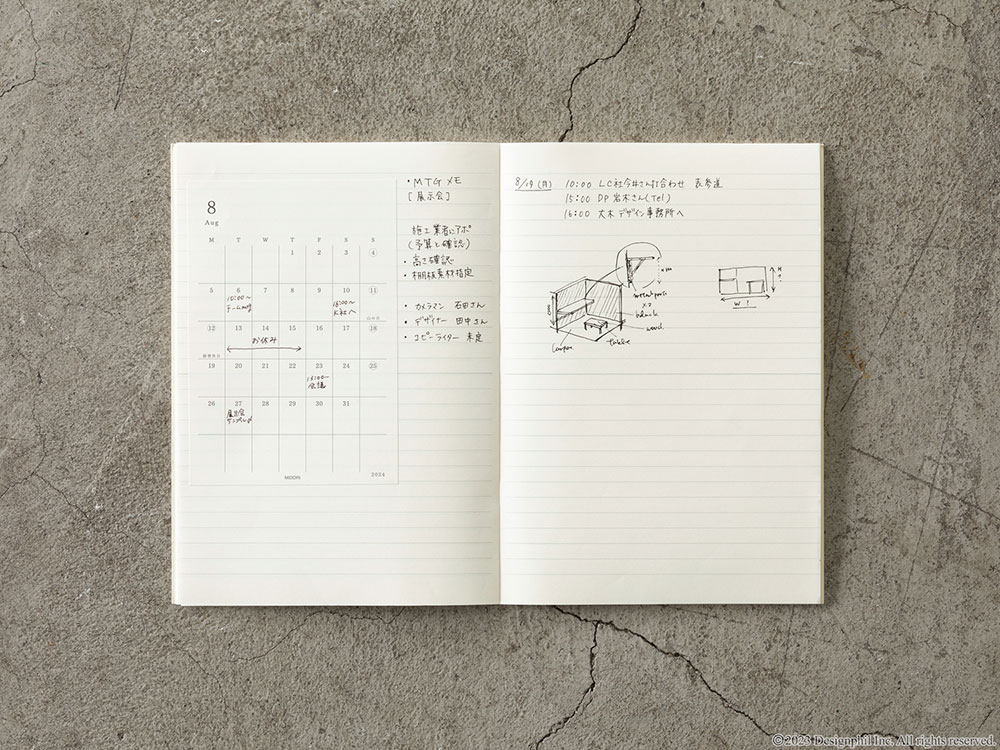 8
Aug
M T W T F S S
1 2 3 4
5 6 7 8 9 10 11
10:00〜
チームmtg
18:00〜
K社へ
山の日
12 13 14 15 16 17 18
お休み
振替休日
19 20 21 22 23 24 25
会議
26 27 28 29 30 31
展示会
MIDORI
2024
・MTGメモ
[展示会]
施工業者にアポ
(予算と確認)
・高さ確認
・棚板素材指定
・カメラマン 石田さん
・デザイナー 田中さん
・コピーライター 未定
8/19(月) 10:00 LC社今井さん打合わせ 表参道
15:00 DP岩木さん(Tel)
16:00 大木デザイン事務所へ
x2
black
wood
table
H?
W?
©2023 Designphil Inc. All rights reserved.